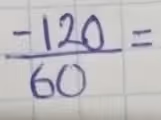 -120
60 =